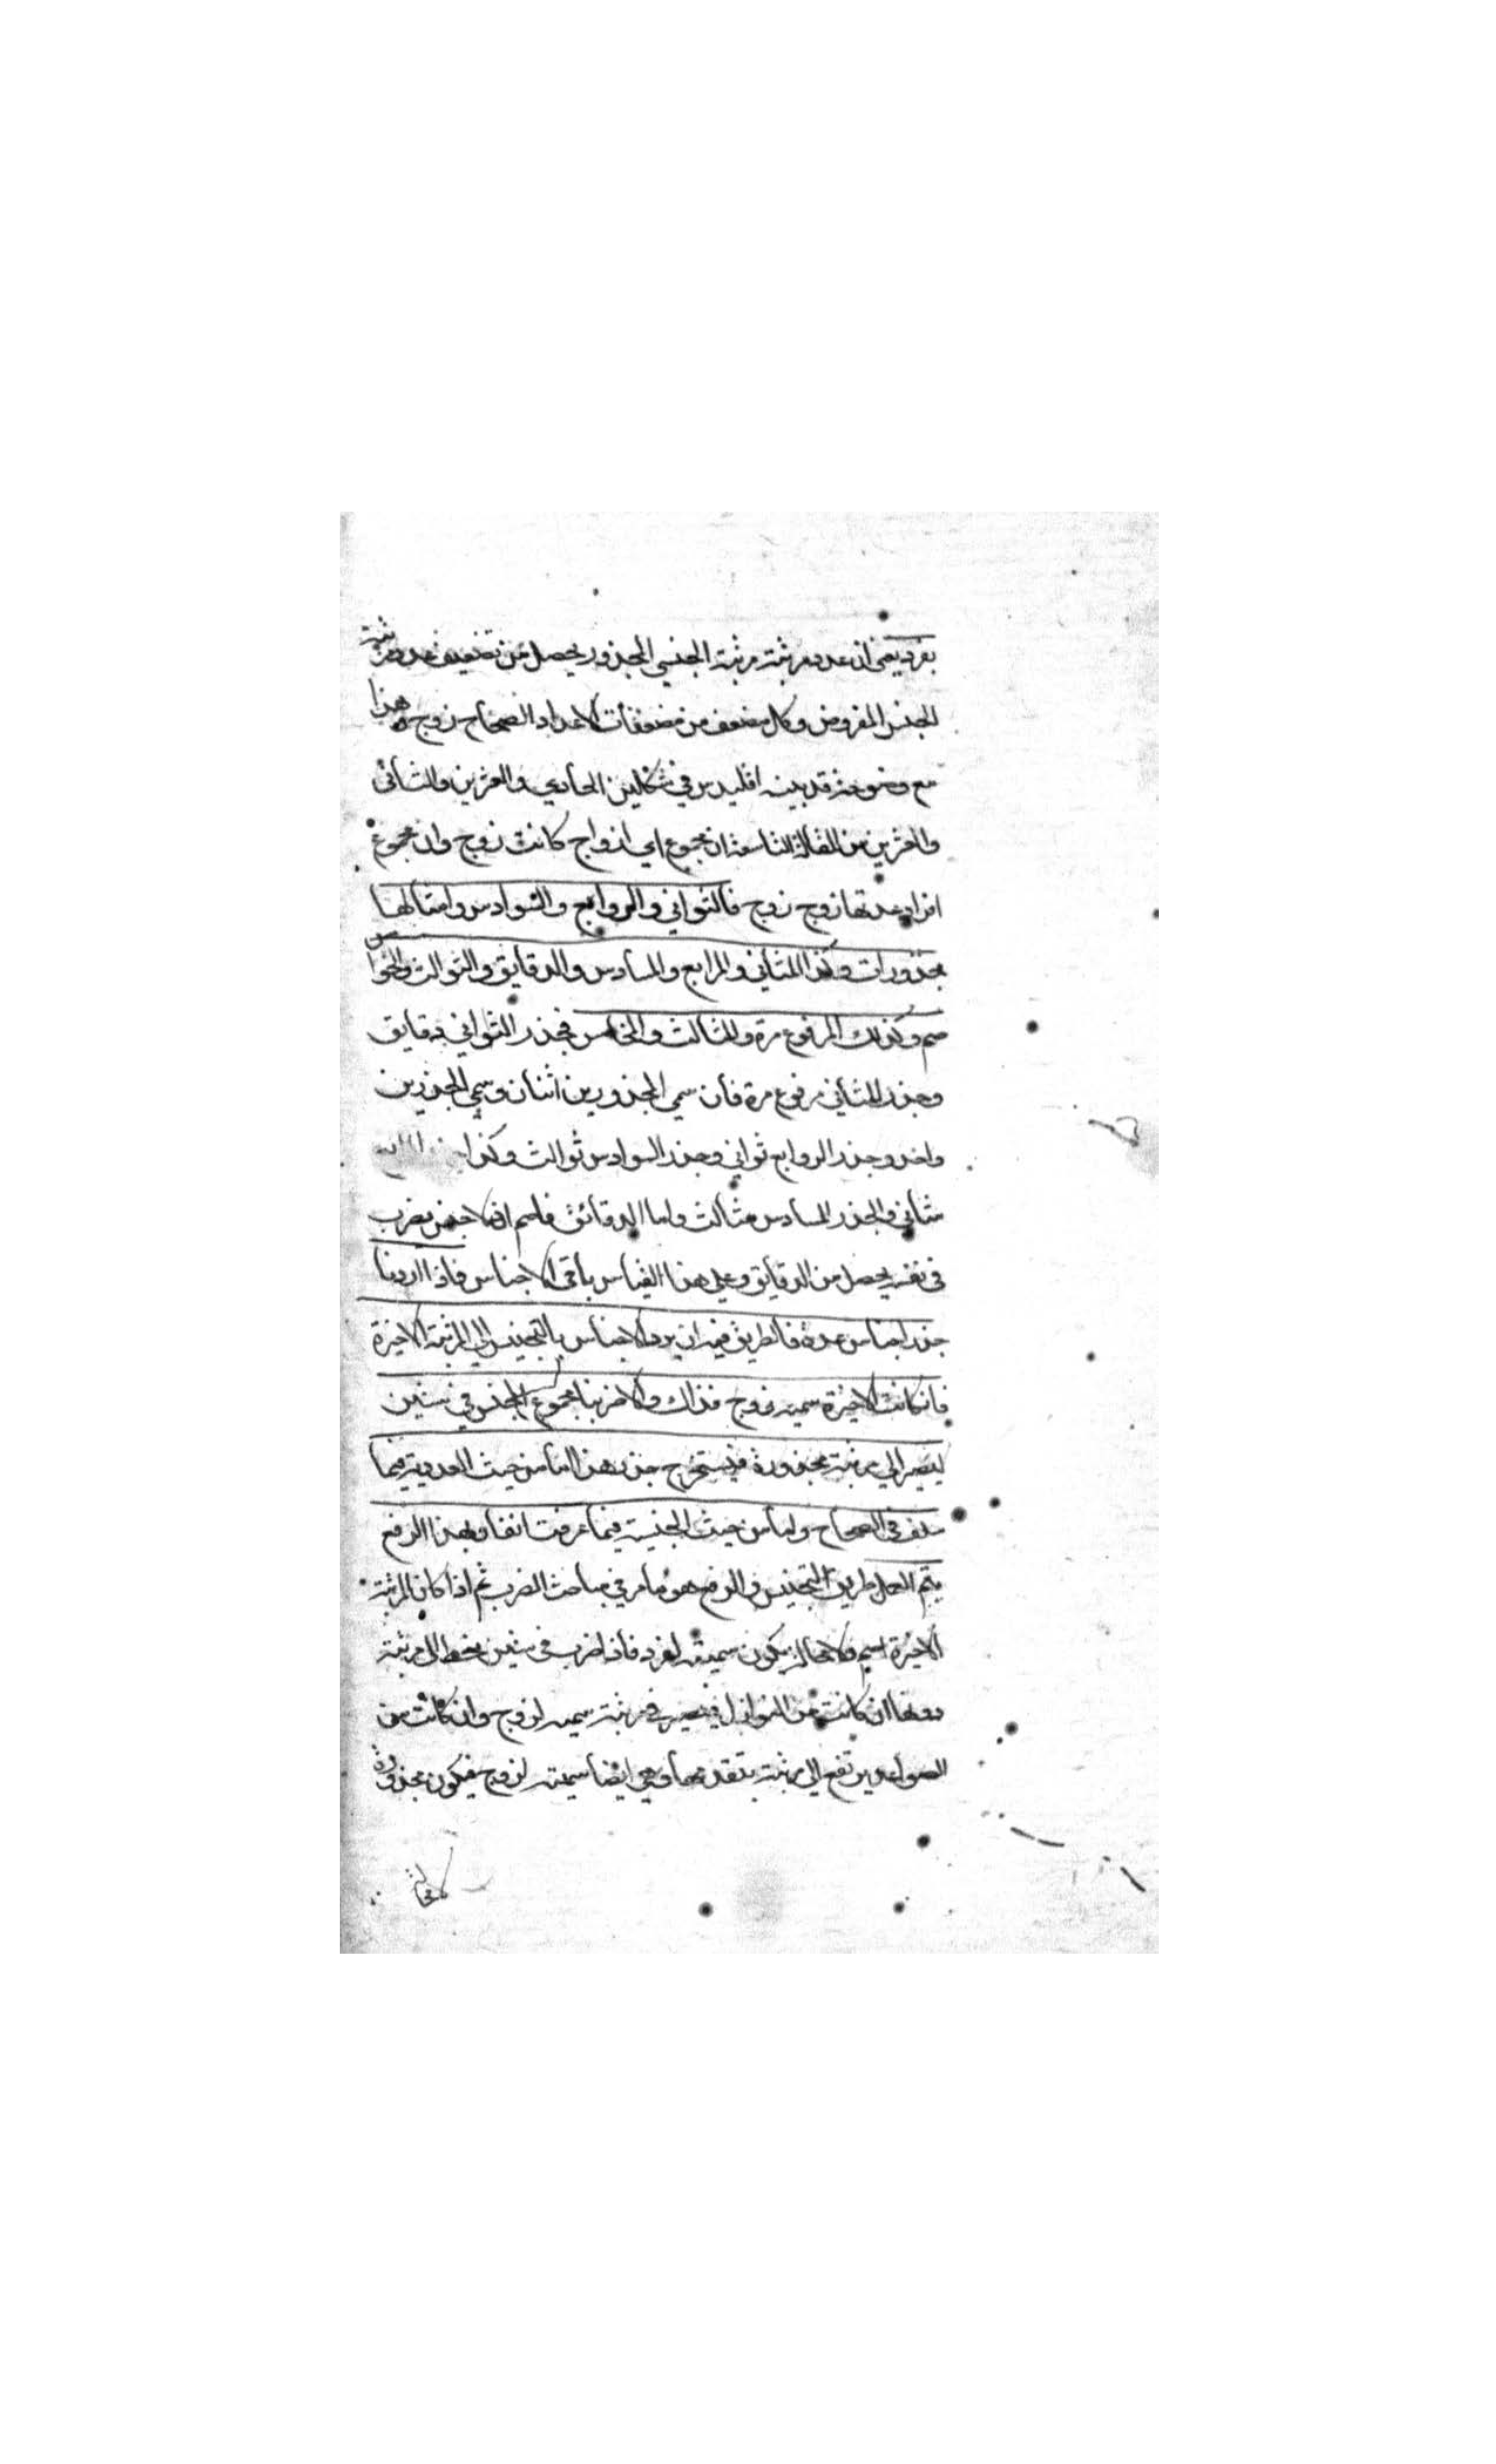 بفرد يعني ان عدد مرتبة مرتبة الجنس المجذور يحصل من تضعيف عدد مرتبة
الجنس المفروض وكل مضعف من مضعفات الاعداد الصحاح زوج وهذا
مع وضوحه قد بينه اقليدس في شكلين الحادي والعشرين والثاني
والعشرين من المقالة التاسعة ان مجموع اي ازواج كانت زوج وان مجموع
افراد عدتها زوج زوج فالثواني والروابع والسوادس وامثالها
مجذورات وكذا المثاني والمرابع والمسادس والدقايق والثوالث والخوامس
صم وكذلك المرفوع مرة والمثالث والمخامس فجذر الثواني دقايق
وجذر المثاني مرفوع مرة فان سمي المجذورين اثنان وسمي الجذرين
واحد وجذر الروابع ثواني وجذر السوادس ثوالث وكذا
مثاني والجذر المسادس مثالث واما الدقائق فاصم اذ لا جنس يضرب
في نفسه يحصل من الدقايق وعلى هذا القياس باقي الاجناس فاذا اردنا
جذر اجناس عدة فالطريق فيه ان يرد الاجناس بالتجنيس الى المرتبة الاخيرة
فان كانت الاخيرة سميه زوج فذاك والا ضربنا مجموع الجنس في ستين
ليصير الى مرتبة مجذورة فيستخرج جذر هذا اما من حيث العددية فبما
سلف في الصحاح واما من حيث الجنسية فبما عرفت انفا وبهذا الرفع
يتم العمل طريق التجنيس والرفع هو ما مر في مباحث الضرب ثم اذا كان المرتبة
الاخيرة اصم فلا محالة يكون سميه لفرد فاذا ضرب في ستين ينحط الى مرتبة
دونها ان كانت من النوازل فيصير في مرتبة سميه لزوج وان كانت من
الصواعد يرتفع الى مرتبة يتقدمها وهي ايضا سميه لزوج فيكون مجذورة
لا محالة